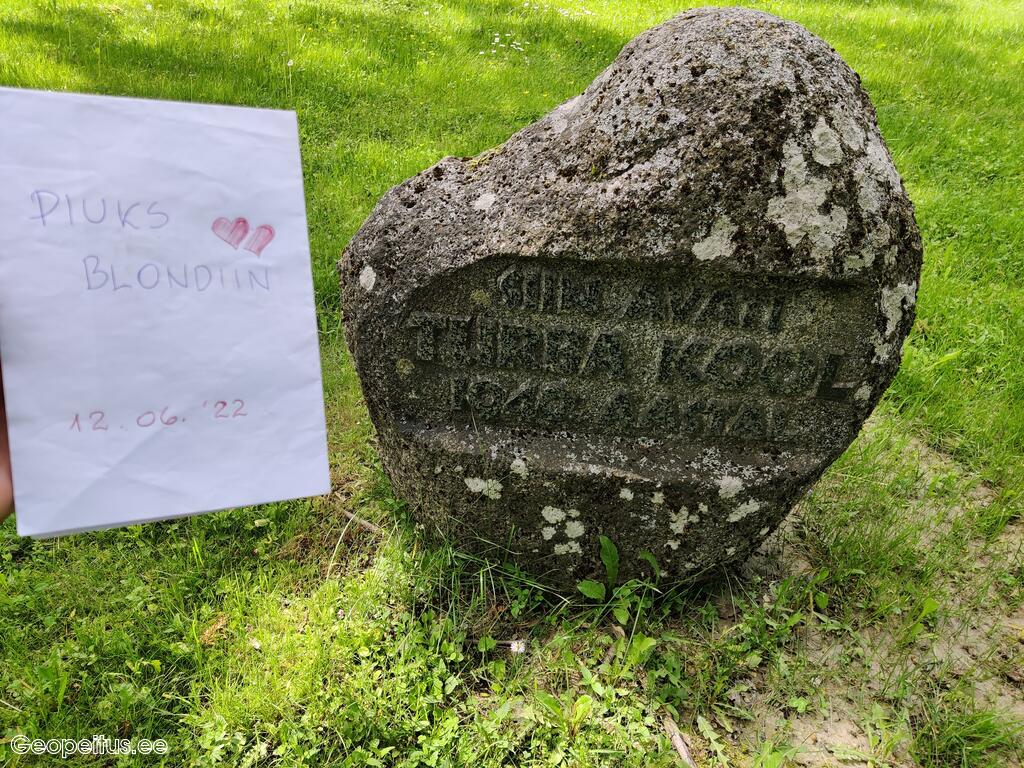 PIUKS
BLONDIIN
12.06.'22
SIIN AVATI
TURBA KOOL
AASTAL
Geopeitus.ee